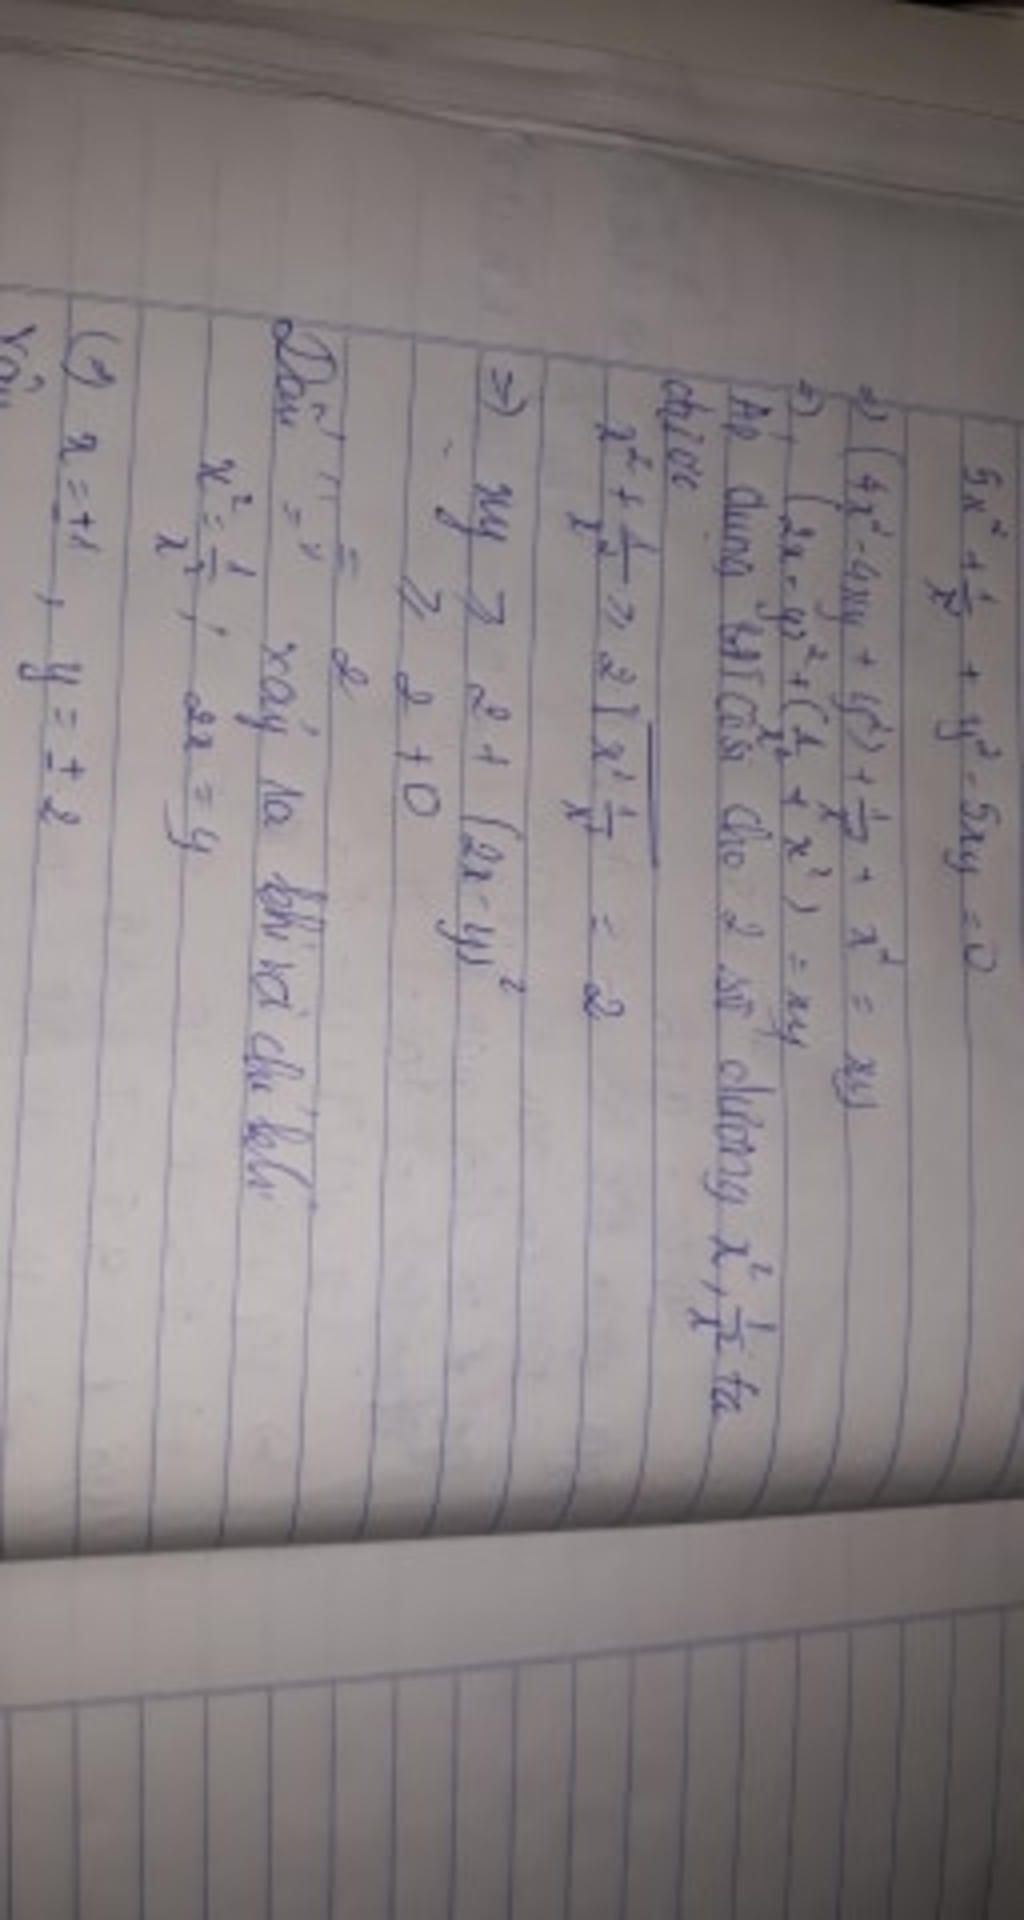 5x² + 1/x² + y² - 5xy = 0
⇔ (4x² - 4xy + y²) + 1/x² + x² = xy
⇔ (2x - y)² + (1/x² + x²) = xy
Áp dụng BĐT Côsi cho 2 số dương x², 1/x² ta
được
x² + 1/x² ≥ 2√(x² 1/x²) = 2
⇒ xy ≥ 2 + (2x - y)²
≥ 2 + 0
= 2
Dấu "=" xảy ra khi và chỉ khi
x² = 1/x² , 2x = y
⇔ x = ±1 , y = ± 2
Vậy